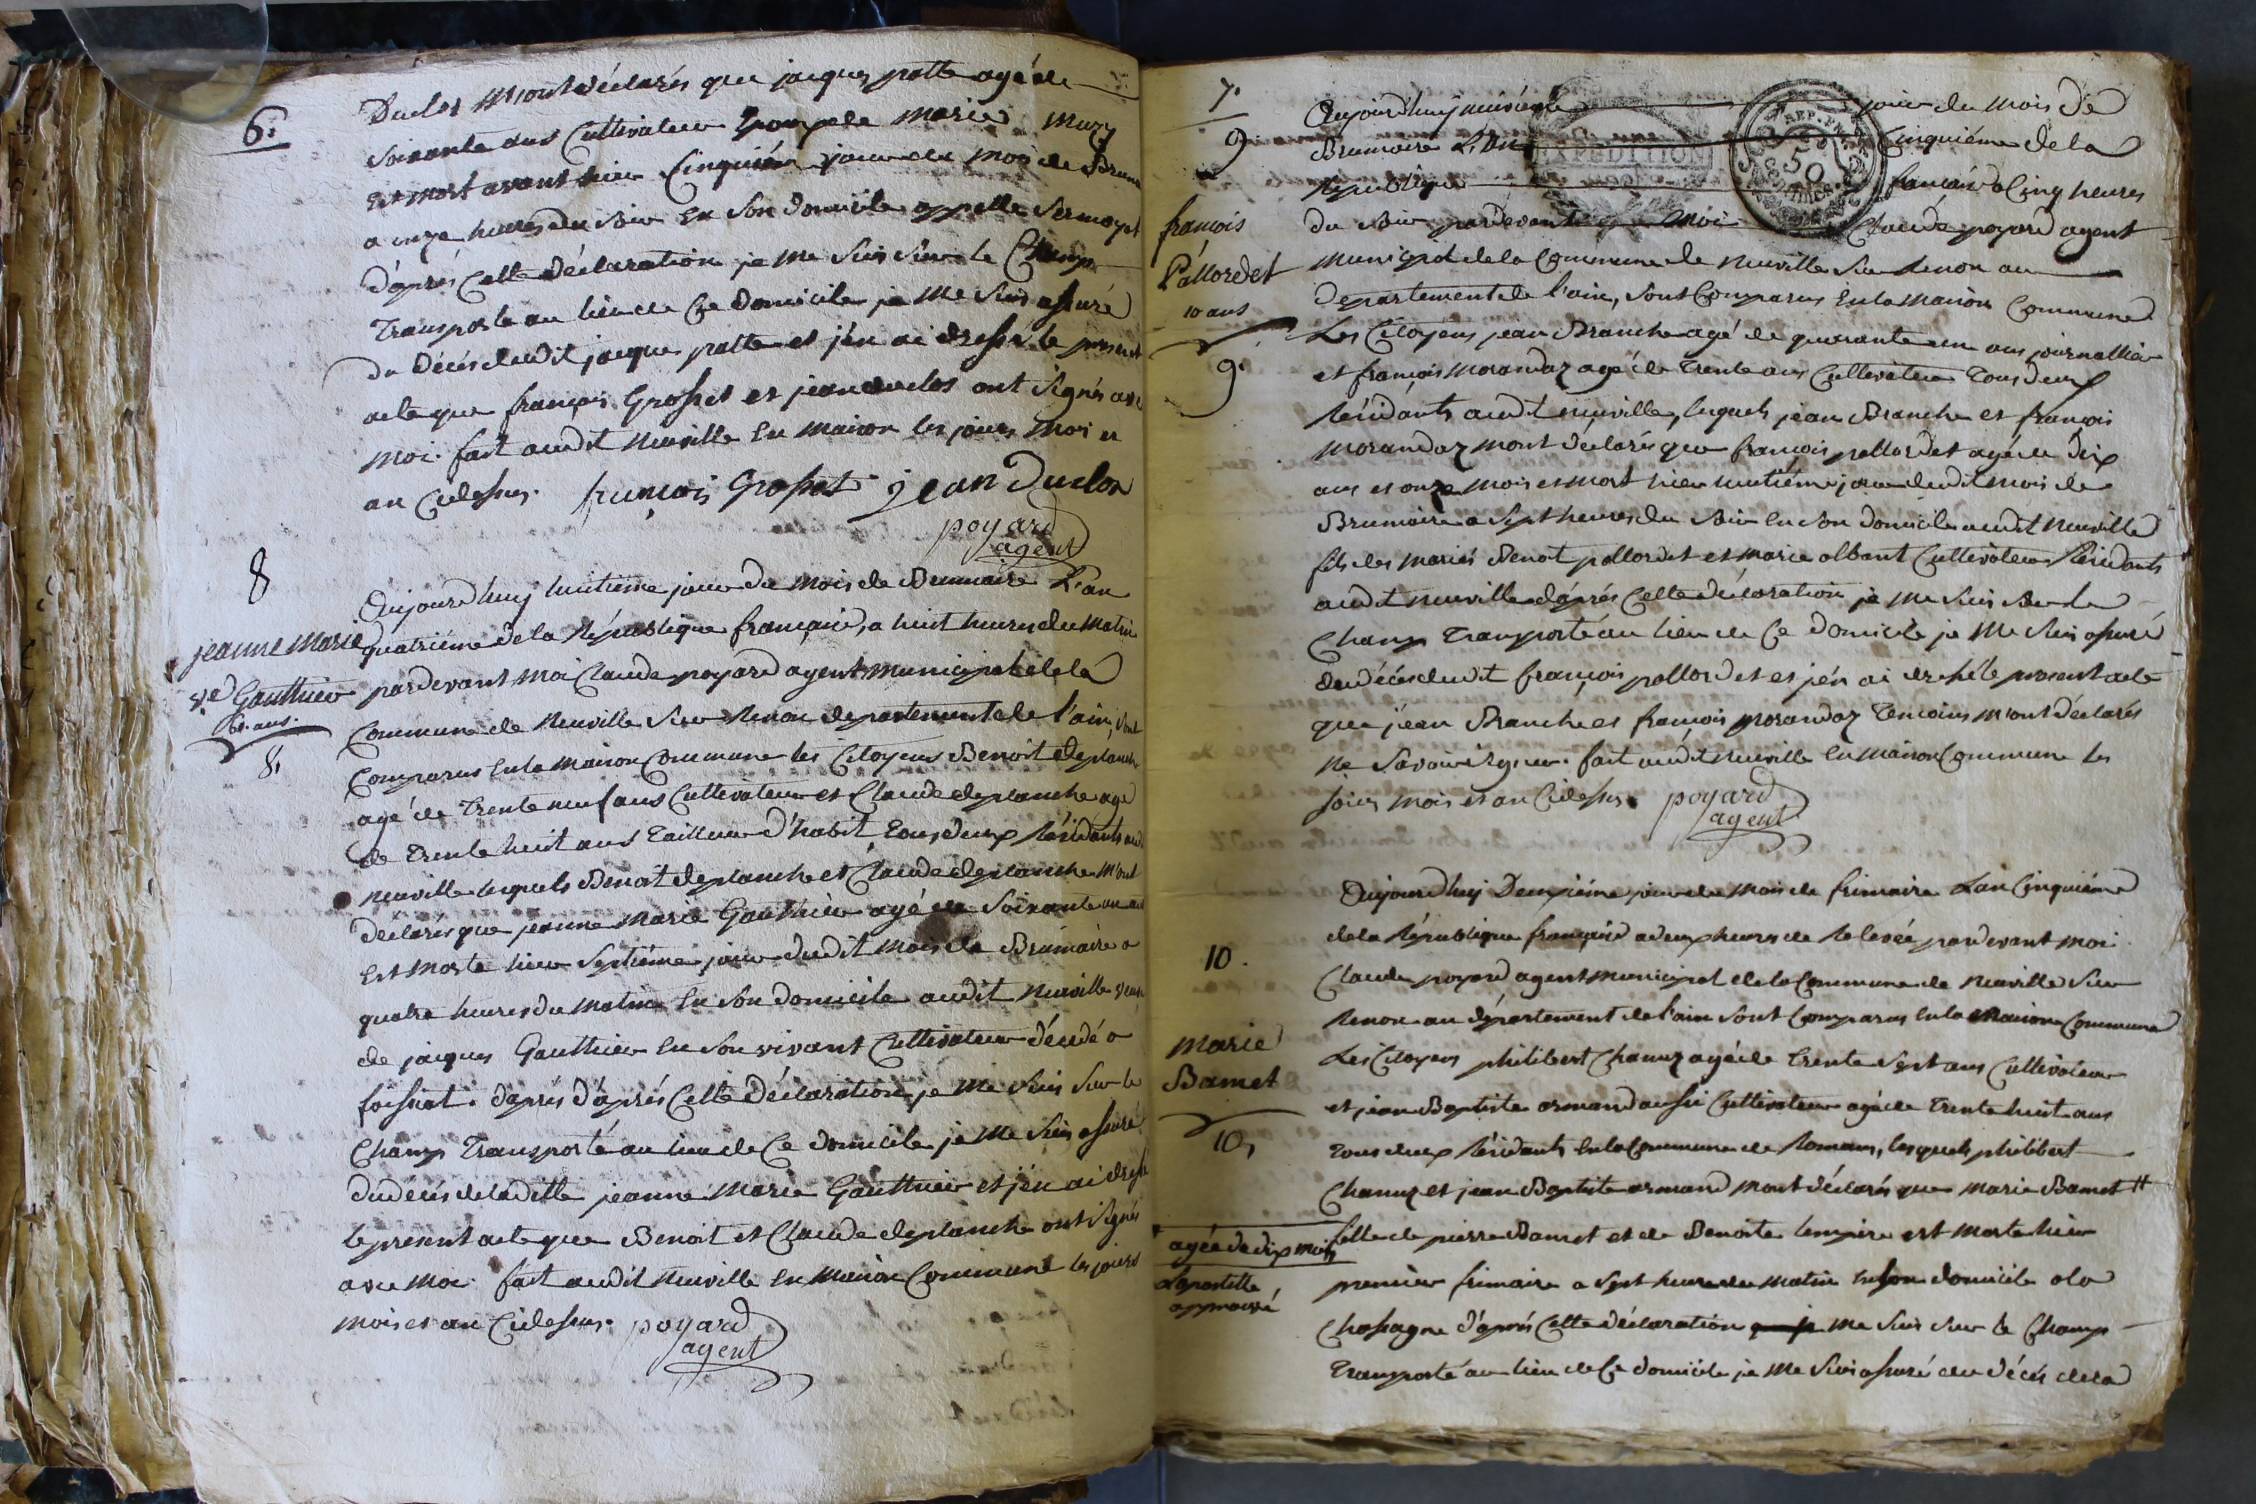 6.
Duclos m'ont déclarés que jacques patte agé de
soixante ans Cultivateur Epoux de marie mury
est mort avant hier Cinquiéme jour du mois de Brum
a onze heures du soir En Son domicile appellé Sermoyet
d'aprés Cette déclaration je me suis sur le Champ
transporté au lieu de Ce domicile je me suis assuré
du décés dudit jacques patte et j'en ai dressé le present
acte que françois Grosset et jean duclos ont signés avec
moi. fait audit neuville En maison les jours mois et
an Cidessus. françois Grosset jean Duclos
poyard
agent
8
jeanne marie
ve Gauthier
61 ans.
8.
Aujourd'huy huitième jour du mois de Brumaire L'an
quatriéme de la République française, a huit heures du matin
pardevant moi Claude poyard agent municipal de la
Commune de Neuville Sur Renon departement de l'ain, sont
Comparus En la maison Commune les Citoyens Benoit deplanche
agé de trente neuf ans Cultivateur et Claude deplanche agé
de trente huit ans tailleur d'habit, tous deux Résidants aud
neuville lesquels Benoit deplanche et Claude deplanche m'ont
déclarés que jeanne Marie Gauthier agé de Soixante un ans
Est morte hier Septiéme jour dudit mois de Brumaire a
quatre heures du matin En Son domicile audit neuville veuve
de jacques Gauthier En Son vivant Cultivateur décédé a
foissiat. d'aprés d'aprés Cette déclaration je me suis sur le
Champ transporté au lieu de Ce domicile je me suis assuré
du décés de la ditte jeanne Marie Gauthier et j'en ai dressé
le present acte que Benoit et Claude deplanche ont signés
avec moi. fait audit neuville En maison Commune les jours
mois et an Cidessus. poyard
agent
7.
9.
françois
Pallordet
10 ans
9.
Aujourd'huy neuviéme jour du mois de
Brumaire L'An Cinquiéme de la
EXPEDITION
REP. FRA.
50
République française a Cinq heures
du soir pardevant moi Claude poyard agent
municipal de la Commune de neuville sur Renon au
departement de l'ain, sont Comparus En la maison Commune
Les Citoyens jean Branche agé de quarante un ans journallier
et françois morandaz agé de trente ans Cultivateur tous deux
Résidants audit neuville, lesquels jean Branche et françois
morandaz m'ont déclarés que françois pallordet agé de dix
ans et onze mois est mort hier huitiéme jour dudit mois de
Brumaire a Sept heures du soir En Son domicile audit neuville
fils des mariés Benoit pallordet et marie albant Cultivateurs Résidants
audit neuville d'aprés Cette déclaration je me suis sur le
Champ transporté au lieu de Ce domicile je me suis assuré
du décés dudit françois pallordet et j'en ai dressé le present acte
que jean Branche et françois morandaz temoins m'ont déclarés
ne savoir signer. fait audit neuville En maison Commune les
jours mois et an Cidessus. poyard
agent
10.
marie
Bamet
10,
Aujourd'huy Deuxiéme jour du mois de frimaire L'an Cinquiéme
de la République française a deux heures de Relevée pardevant moi
Claude poyard agent municipal de la Commune de neuville Sur
Renon au département de l'ain sont Comparus En la maison Commune
Les Citoyens philibert Chanuz agé de trente Sept ans Cultivateur
et jean Baptiste armand aussi Cultivateur agé de trente huit ans
tous deux Résidants En la Commune de Romans, lesquels philibert
Chanuz et jean Baptiste armand m'ont déclarés que marie Bamet #
fille de pierre Bamet et de Benoite lempire est morte hier
# agée de dix mois
L'apostille
approuvé
premier frimaire a Sept heures du matin En son domicile a la
Chassagne d'aprés Cette déclaration je me suis sur le Champ
transporté au lieu de Ce domicile je me suis assuré du décés de la